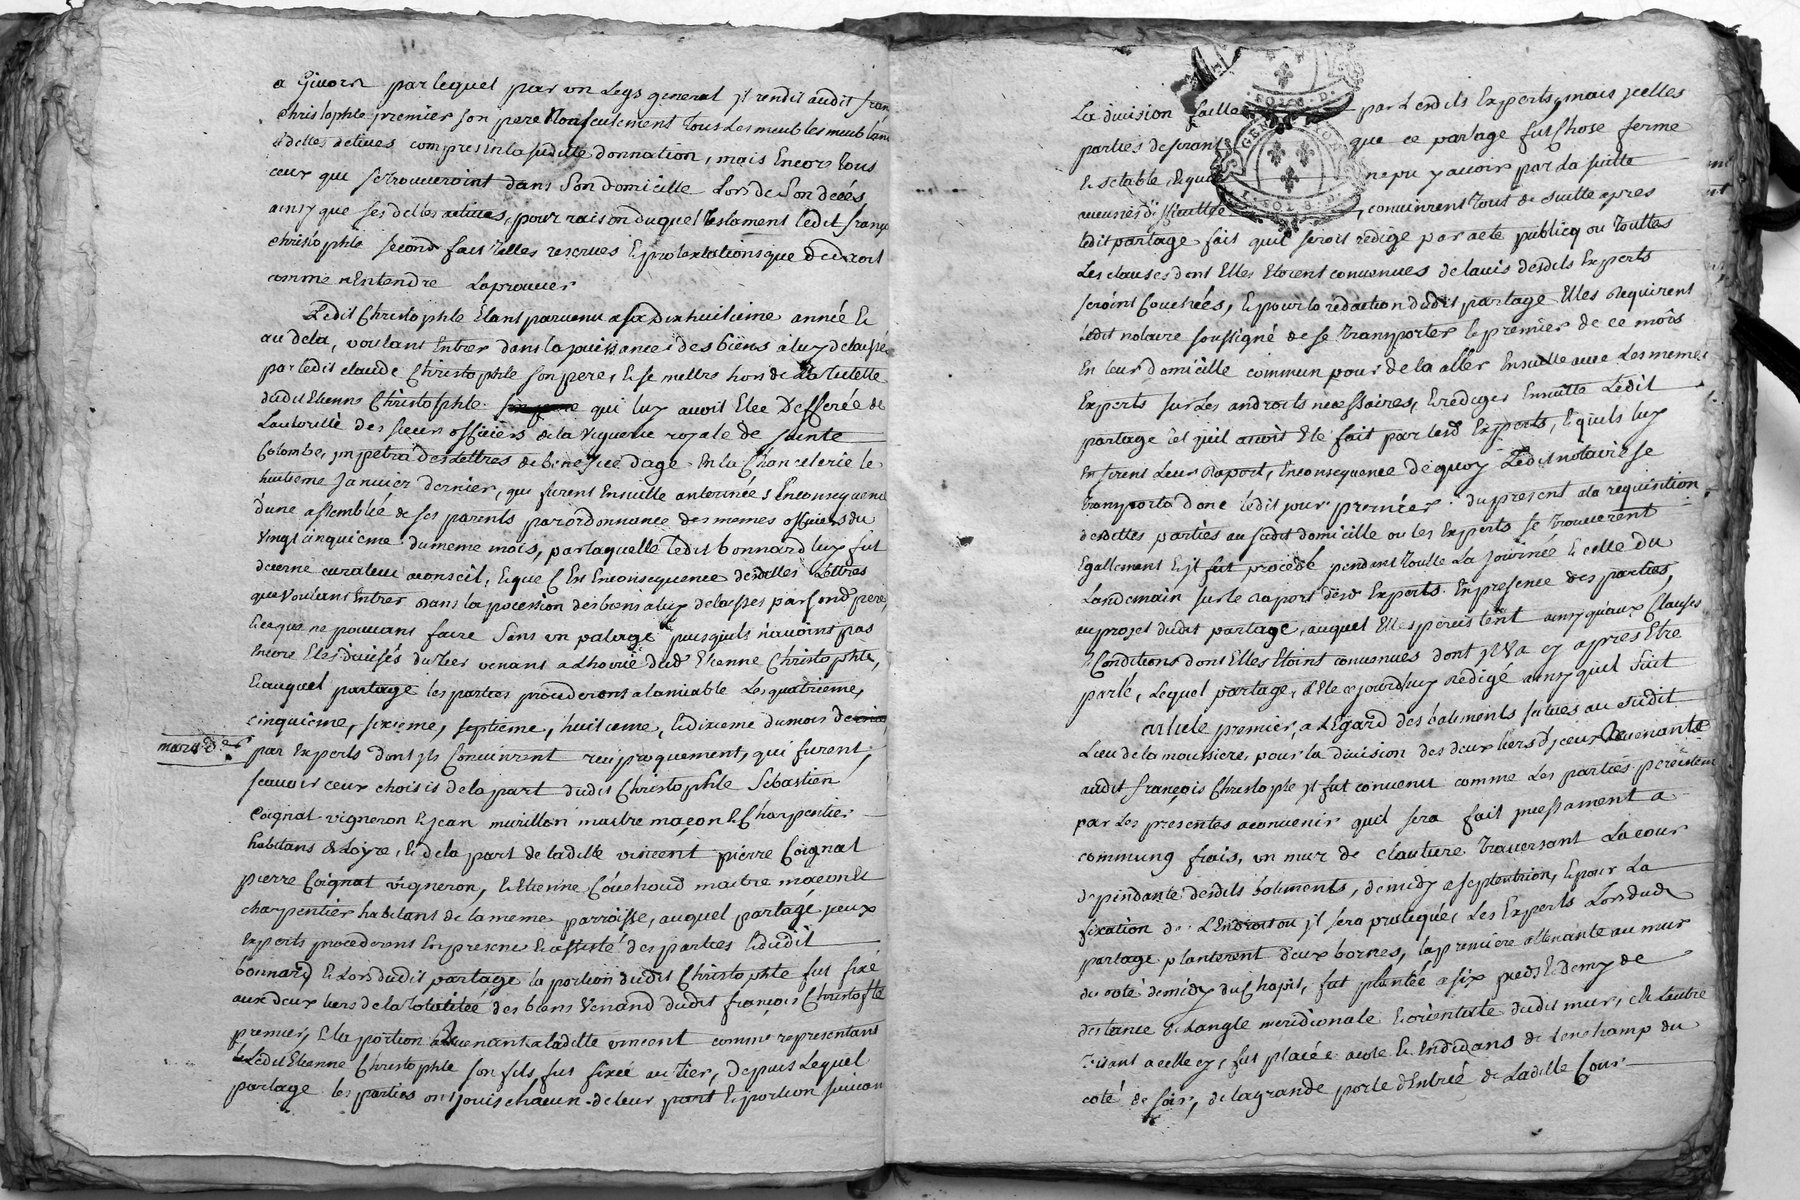 a Givors par lequel par un Legs general jl rendit audit fran
Christophle premier son pere Nonseulement Tous Les meubles meublans
& dettes actives compres en la susditte donnation, mais Encore Tous
ceux que se trouveroint dans Son domicille Lors de Son decés,
ainsy que ses dettes actives, pour raison duquel Testament Ledit franço
Christophle second fait Telles reserves & protestations que de droit
comme n'Entendre Laprouver
Ledit Christophle Etant parvenu a sa Dix huitieme année &
au dela, voulant Entrer dans la jouissance des biens a luy delaissé
par ledit claude Christophle son pere, & se mettre hors de La Tutelle
dudit Etienne Christophle qui luy avoit Eté Defferée de
Lautorité des sieurs officiers de la viguerie royale de sainte
Colombe, jmpetra des Lettres de benefice dage En la Chancelerie le
huitieme Janvier dernier, qui furent Ensuitte anterinées Enconsequence
d'une assemblée de ses parents par ordonnance des memes officiers du
vingt cinquieme du meme mois, par laquelle ledit bonnard luy fut
decerné curateur a conseil, & que C'Est Enconsequence desdittes Lettres
que voulant Entrer dans la pocession des biens a luy delaissés par sond pere,
& ce que ne pouvant faire Sans un patage puisqu'ils n'avoint pas
Encore Etés divisés du tier venant a Lhoirie dud Etienne Christophle,
& auquel partage les parties procederent a lamiable Les quatrieme,
cinquieme, sixieme, septieme, huitieme, & dixieme du mois de
mars d.er
par Experts dont jls Convinrent reciproquement, qui furent,
scavoir ceux choisis de la part dudit Christophle Sebastien
Coignat vigneron & jean murillon maitre maçon & Charpentier
habitans de Loyre, & de la part de laditte vincent pierre Coignat
pierre Coignat vigneron, & Etienne Couchoud maitre maçon &
charpentier habitans de la meme parroisse, auquel partage jceux
Experts procederent En presence & assisté des parties & dudit
bonnard & Lors dudit partage la portion dudit Christophle fut fixé
aux deux tiers de la totalitée des biens venand dudit françois Christophle
premier, & la portion advenant a laditte vincent comme representant
Ledit Etienne Christophle son fils, fut fixée au tier, depuis Lequel
partage les parties ont jouis chacun de leur part & portion suivan
La division faitte par Lesdits Experts, mais jcelles
parties desirant que ce partage fut Chose ferme
& stable, & que ne pu y avoir par La suitte
aucunes difficultte, convinrent Tout de suitte apres
ledit partage fait quil seroit redigé par acte publicq ou Touttes
Les clauses dont Elles Etoient convenues de lavis desdits Experts
seroint Couchées, & pour la redaction dudit partage Elles Requirent
ledit notaire soussigné de se transporter le premier de ce mois
En leur domicille commun pour de la aller Ensuitte avec Les memes
Experts sur Les androits necessaires, & rediger Ensuitte Ledit
partage tel quil avoit Eté fait par lesd Experts, & quils luy
En firent Leur Raport, Enconsequence de quoy Ledit notaire se
transporta donc ledit jour premier du present a la requisition
desdittes parties au susdit domicille ou les Experts se trouverent
Egallement & jl fut procedé pendant Toutte La journée & celle du
Landemain sur le raport desd Experts En presence des parties,
au projet dudit partage, auquel Elles persistent ainsy qu'aux Clauses
& Conditions dont Elles Etoint convenues dont jl va cy apres Etre
parlé, Lequel partage, a Eté ce jourd'huy Redigé ainsy quil suit
Article premier, a L'Egard des batiments situés au susdit
Lieu de la moussiere, pour la division des deux tiers d'jceux Revenants
audit françois Christophle jl fut convenu comme Les parties persistent
par Les presentes a convenir quil sera fait jncessament a
communq frais, un mur de clauture traversant La cour
dependante desdits batiments, de midy a septentrion, & pour La
fixation de L'Endroit ou jl sera pratiqué, Les Experts Lors dud
partage planterent deux bornes, la premiere attenante au mur
du coté de midy du Chapit, fut plantée a six pieds & demy de
distance de Langle meridionale & orientale dudit mur, & Lautre
visant a celle cy, fut placée a coté & En dedans de Lenchamp du
coté de soir, de la grande porte d'Entrée de Laditte Cour